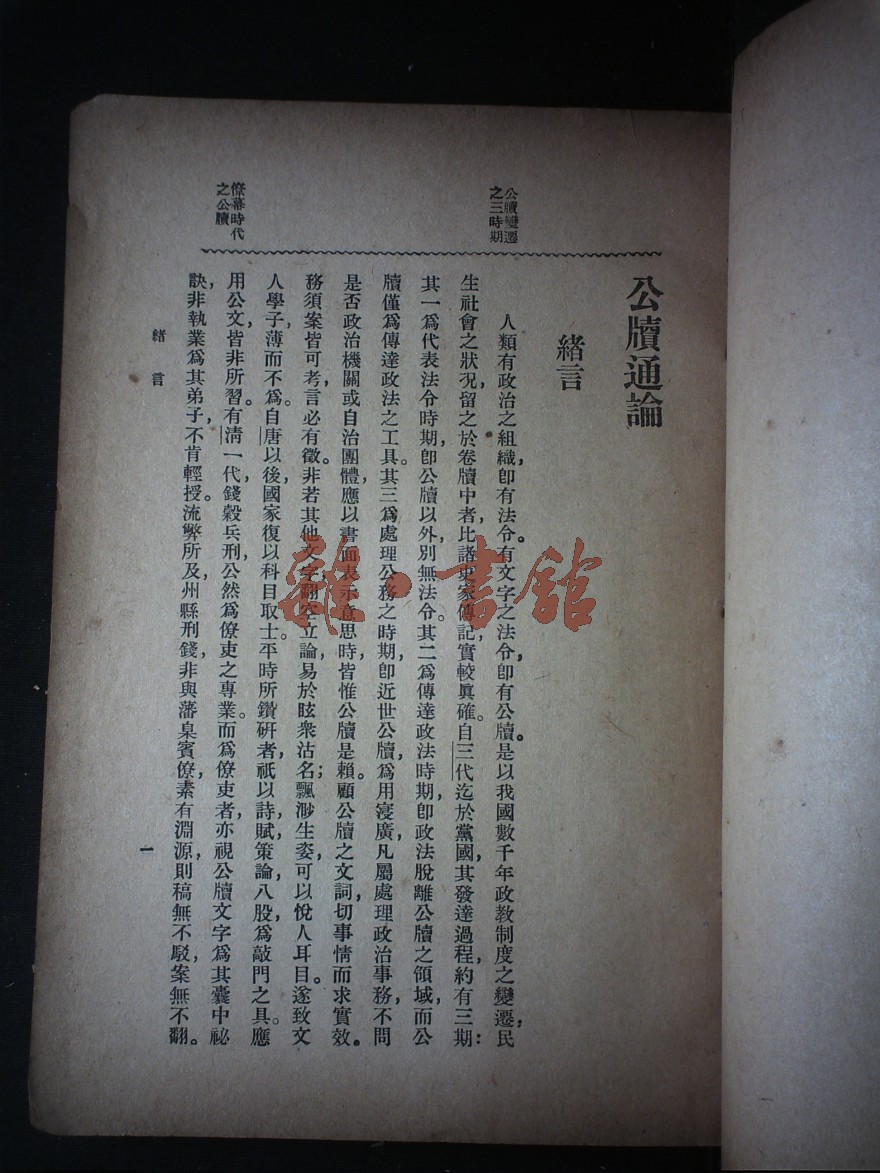 公牘通論
緒言
公牘變遷
之三時期
人類有政治之組織，卽有法令。有文字之法令，卽有公牘。是以我國數千年政教制度之變遷，民
生社會之狀况，留之於卷牘中者，比諸史家傳記，實較眞確。自三代迄於黨國，其發達過程，約有三期：
其一爲代表法令時期，卽公牘以外，別無法令。其二爲傳達政法時期，卽政法脫離公牘之領域，而公
牘僅爲傳達政法之工具。其三爲處理公務之時期，卽近世公牘，爲用寖廣，凡屬處理政治事務，不問
是否政治機關或自治團體，應以書面表示意思時，皆惟公牘是賴。顧公牘之文詞，切事情而求實效。
務須案皆可考，言必有徵。非若其他文字，翻空立論，易於眩衆沽名；飄渺生姿，可以悅人耳目。遂致文
人學子，薄而不爲。自唐以後，國家復以科目取士。平時所鑽硏者，祇以詩賦，策論，八股，爲敲門之具。應
僚幕時代
之公牘
用公文，皆非所習。有淸一代，錢穀兵刑，公然爲僚吏之專業。而爲僚吏者，亦視公牘文字爲其囊中祕
訣，非執業爲其弟子，不肯輕授。流弊所及，州縣刑錢，非與藩臬賓僚，素有淵源，則稿無不駁，案無不翻。
緒言
一
雜·書館